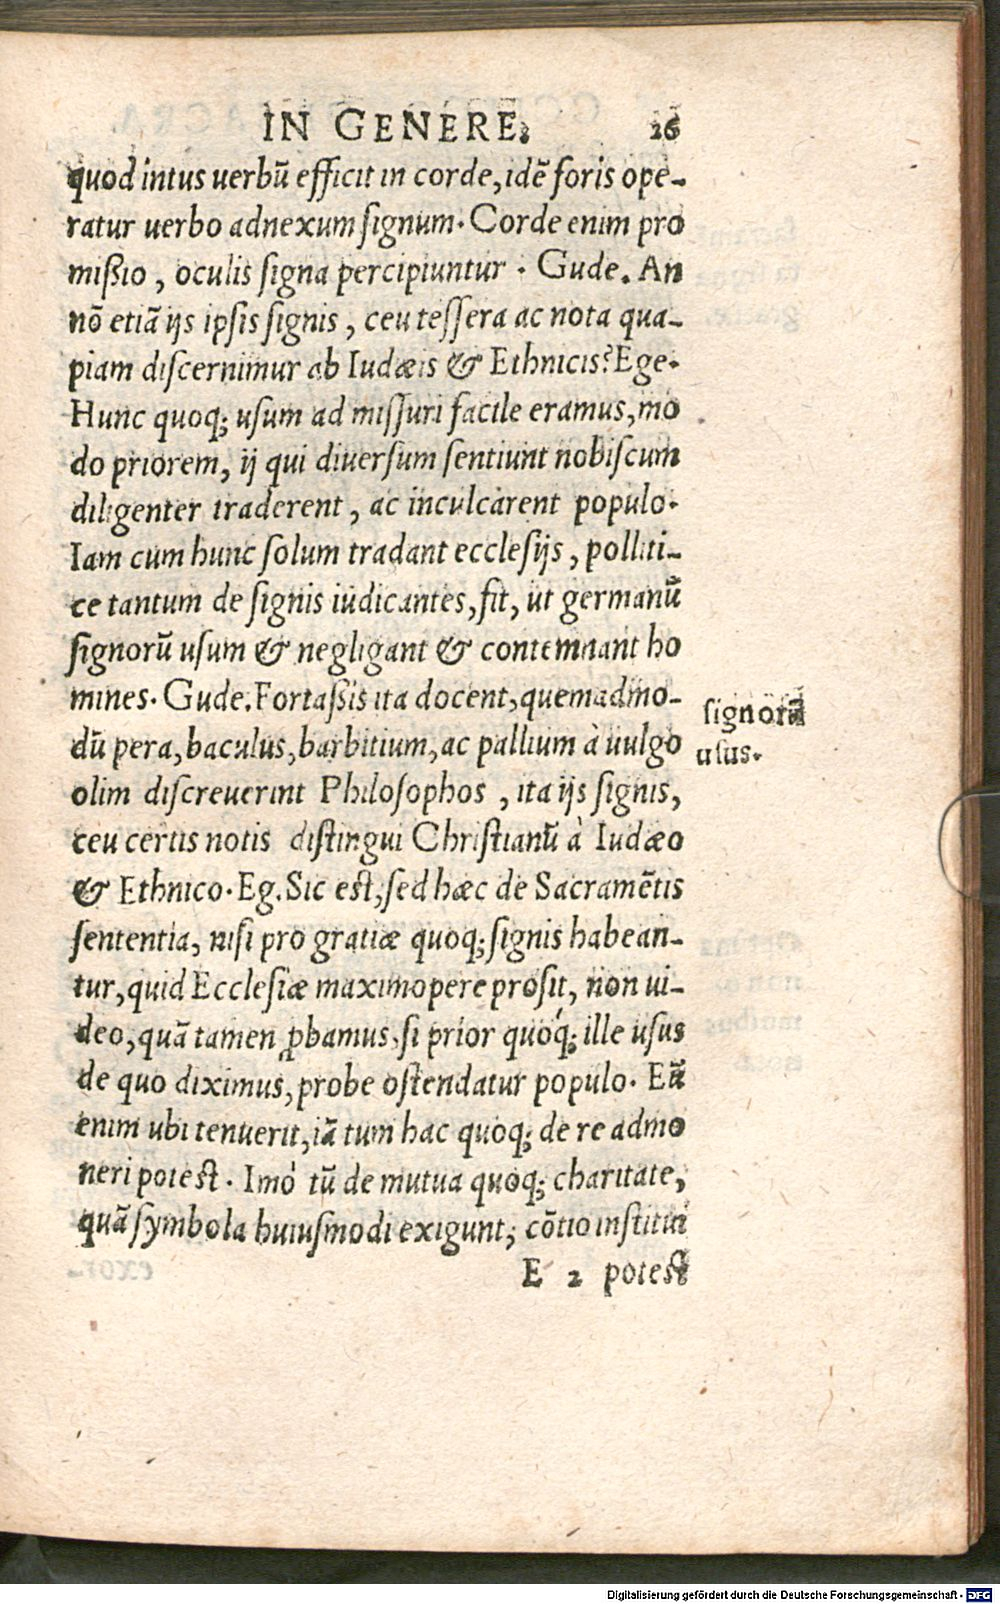 IN GENERE. 26
quod intus uerbũ efficit in corde, idẽ foris ope-
ratur uerbo adnexum signum. Corde enim pro
mißio, oculis signa percipiuntur. Gude. An
nõ etiã ijs ipsis signis, ceu tessera ac nota qua-
piam discernimur ab Iudæis & Ethnicis? Ege.
Hunc quoq; usum ad missuri facile eramus, mo
do priorem, ij qui diuersum sentiunt nobiscum
diligenter traderent, ac inculcarent populo.
Iam cum hunc solum tradant ecclesijs, politi-
ce tantum de signis iudicantes, fit, ut germanũ
signorũ usum & negligant & contemnant ho
mines. Gude. Fortaßis ita docent, quemadmo-
dũ pera, baculus, barbitium, ac pallium à uulgo
olim discreuerint Philosophos, ita ijs signis,
ceu certis notis distingui Christianũ à Iudæo
& Ethnico. Eg. Sic est, sed hæc de Sacramẽtis
sententia, nisi pro gratiæ quoq; signis habean-
tur, quid Ecclesiæ maximopere prosit, non ui-
deo, quã tamen ꝓbamus, si prior quóq; ille usus
de quo diximus, probe ostendatur populo. Eũ
enim ubi tenuerit, iã tum hac quoq; de re admo
neri potest. Imò tũ de mutua quoq; charitate,
quã symbola huiusmodi exigunt, cõtio institui
E 2 potest
signorũ
usus.
Digitalisierung gefördert durch die Deutsche Forschungsgemeinschaft - DFG